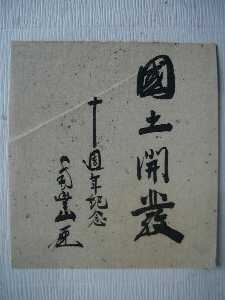 國土開發
十週年記念